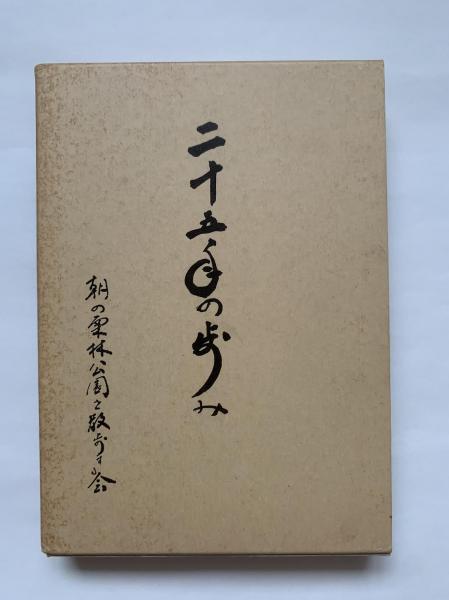 二十五年の歩み
朝の栗林公園を散歩する会